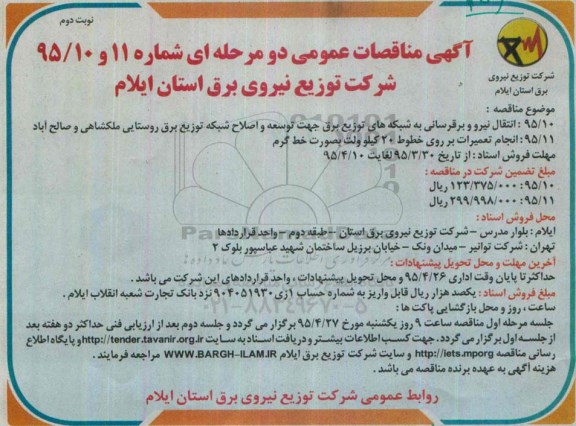 نوبت دوم
آگهی مناقصات عمومی دو مرحله ای شماره ۱۱ و ۹۵/۱۰
شرکت توزیع نیروی برق استان ایلام
شرکت توزیع نیروی
برق استان ایلام
موضوع مناقصه :
۹۵/۱۰ : انتقال نیرو و برقرسانی به شبکه های توزیع برق جهت توسعه و اصلاح شبکه توزیع برق روستایی ملکشاهی و صالح آباد
۹۵/۱۱ : انجام تعمیرات بر روی خطوط ۲۰ کیلو ولت بصورت خط گرم
مهلت فروش اسناد : از تاریخ ۹۵/۳/۳۰ لغایت ۹۵/۴/۱۰
مبلغ تضمین شرکت در مناقصه :
۹۵/۱۰ : ۱۲۳/۳۷۵/۰۰۰ ریال
۹۵/۱۱ : ۲۹۹/۹۹۸/۰۰۰ ریال
محل فروش اسناد :
ایلام : بلوار مدرس – شرکت توزیع نیروی برق استان – طبقه دوم – واحد قراردادها
تهران : شرکت توانیر – میدان ونک – خیابان برزیل ساختمان شهید عباسپور بلوک ۲
آخرین مهلت و محل تحویل پیشنهادات :
حداکثر تا پایان وقت اداری ۹۵/۴/۲۶ و محل تحویل پیشنهادات ، واحد قراردادهای این شرکت می باشد .
مبلغ فروش اسناد : یکصد هزار ریال قابل واریز به شماره حساب ۱زی۹۰۴۰۵۱۹۳۰ نزد بانک تجارت شعبه انقلاب ایلام .
ساعت ، روز و محل بازگشایی پاکت ها :
جلسه مرحله اول مناقصه ساعت ۹ روز یکشنبه مورخ ۹۵/۴/۲۷ برگزار می گردد و جلسه دوم بعد از ارزیابی فنی حداکثر دو هفته بعد
از جلسه اول برگزار می گردد . جهت کسب اطلاعات بیشتر و دریافت اسناد به سایت http://tender.tavanir.org.ir و پایگاه اطلاع
رسانی مناقصه http://iets.mporg و سایت شرکت توزیع برق ایلام WWW.BARGH-ILAM.IR مراجعه فرمایند .
هزینه آگهی به عهده برنده مناقصه می باشد .
روابط عمومی شرکت توزیع نیروی برق استان ایلام
۰۲۱-۸۸۳۴۹۶۷۰-۵